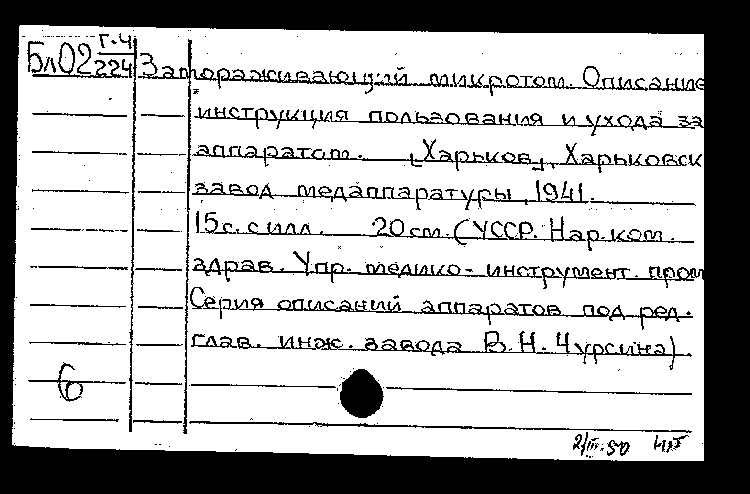 Бл02 г.4
224
Замораживающий микротом. Описание
инструкция пользования и ухода за
аппаратом. [Харьков], Харьковск
завод медаппаратуры, 1941.
15 с. с илл. 20 см. (УССР. Нар. ком.
здрав. Упр. медико-инструмент. пром
Серия описаний аппаратов под ред.
глав. инж. завода В. Н. Чурсина).
6
2/III.50